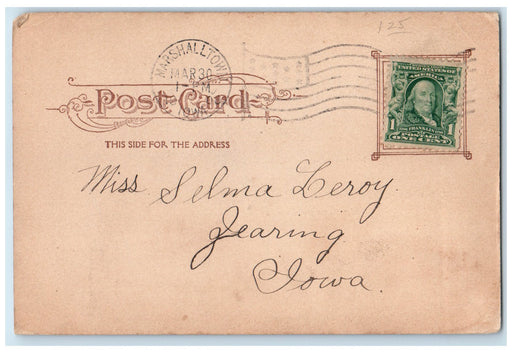 1 25
MARSHALLTOWN
MAR 30
M
IOWA
UNITED STATES OF
AMERICA
FRANKLIN
1 POSTAGE 1
ONE CENT
Post Card
THIS SIDE FOR THE ADDRESS
Miss Selma Leroy.
Zearing
Iowa.